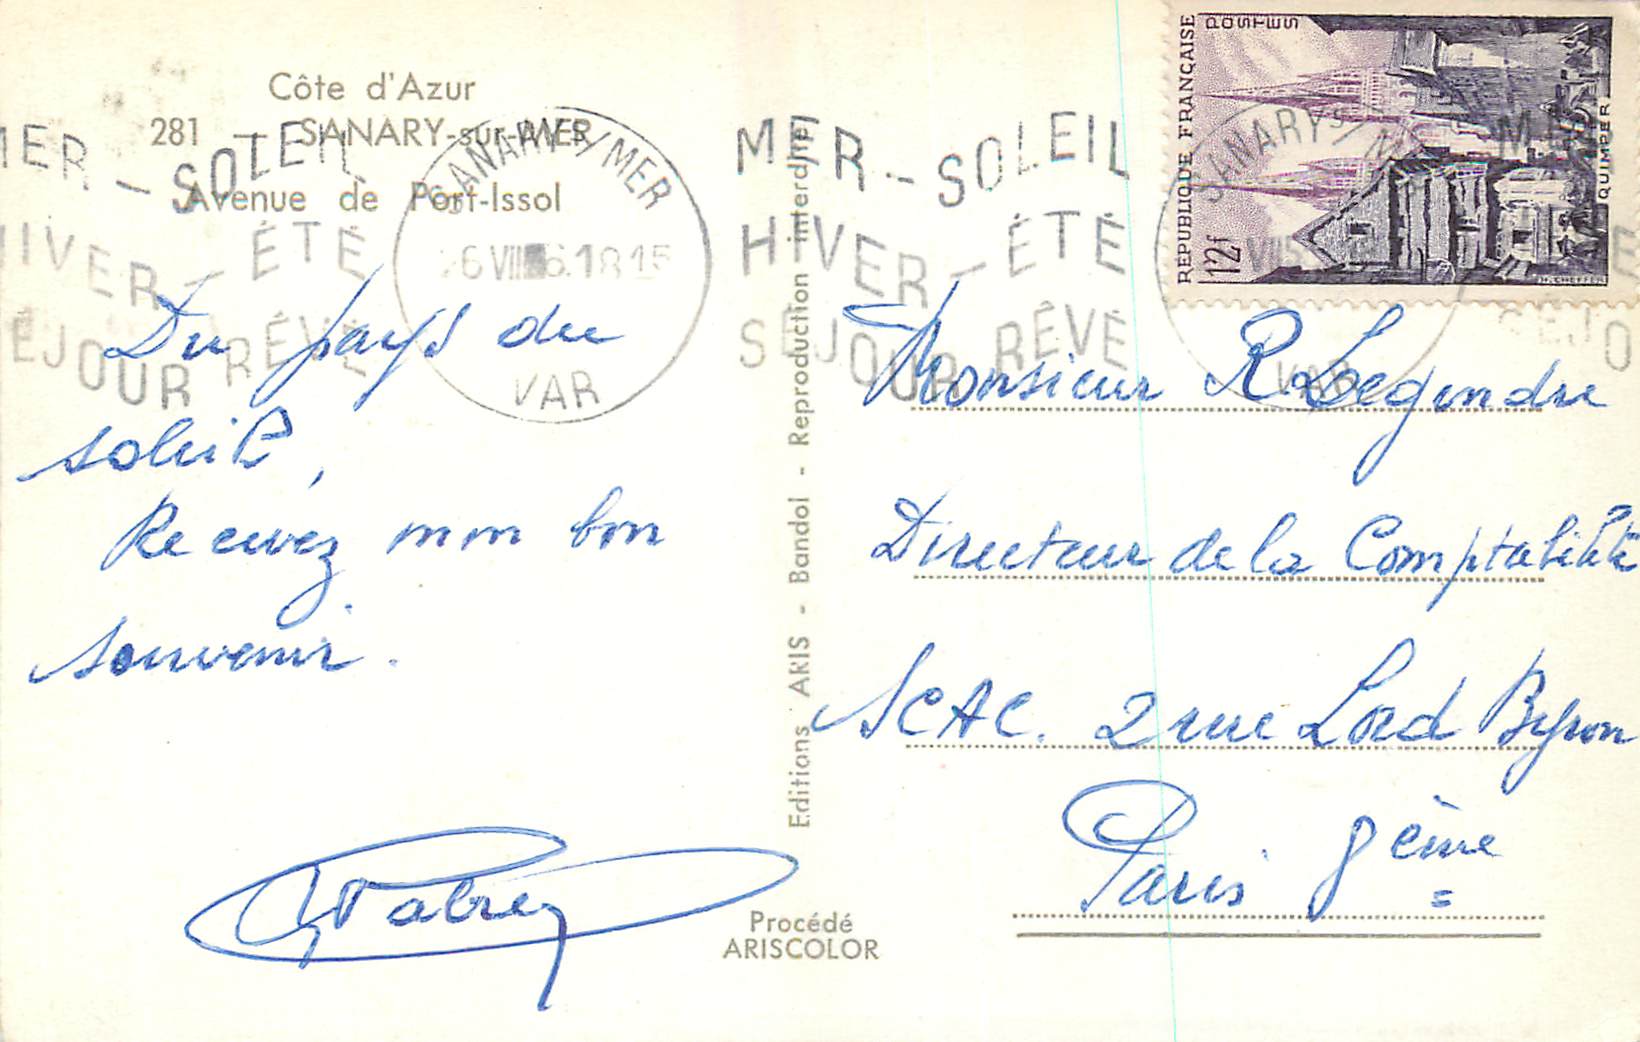 Côte d'Azur
281 — SANARY-sur-MER
Avenue de Port-Issol
MER - SOLEIL
HIVER - ÉTÉ
SÉJOUR RÊVÉ
SANARY S/MER
VAR
MER - SOLEIL
HIVER - ÉTÉ
SÉJOUR RÊVÉ
SANARY S/MER
VAR
RÉPUBLIQUE FRANÇAISE
POSTES
12f
QUIMPER
Du pays du
soleil,
Recevez mon bon
souvenir.
Editions ARIS - Bandol - Reproduction interdite
Procédé
ARISCOLOR
Monsieur R Legendre
Directeur de la Comptabilité
SCAC. 2 rue Lord Byron
Paris 8ème